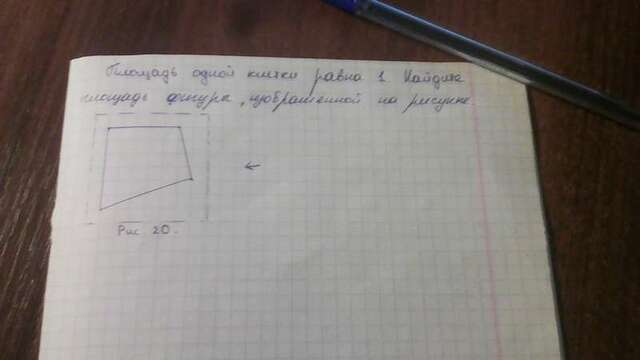 Площадь одной клетки равна 1. Найдите
площадь фигуры, изображённой на рисунке.
Рис. 20.